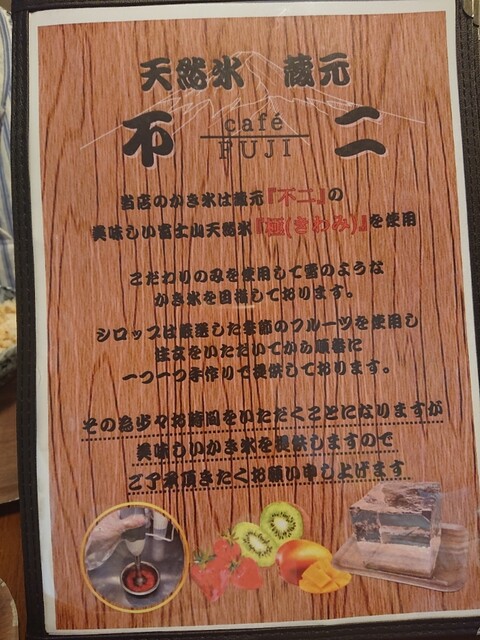 天然氷 蔵元
不二
café
FUJI
当店のかき氷は蔵元『不二』の
美味しい富士山天然氷『極(きわみ)』を使用
こだわりの氷を使用して雪のような
かき氷を目指しております。
シロップは厳選した季節のフルーツを使用し
注文をいただいてから順番に
一つ一つ手作りで提供しております。
その為少々お時間をいただくことになりますが
美味しいかき氷を提供しますので
ご了承頂きたくお願い申し上げます